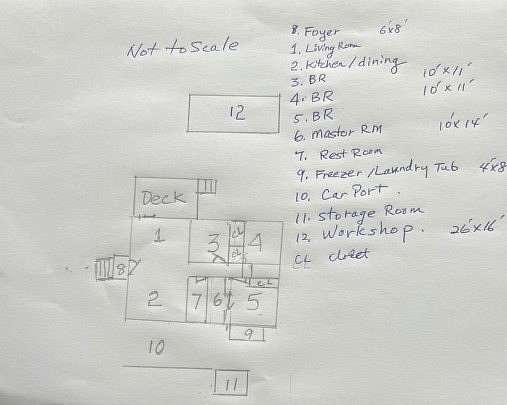 Not to Scale
8. Foyer 6'x8'
1. Living Room
2. Kitchen/dining
3. BR 10'x11'
4. BR 10'x11'
5. BR
6. Master RM 10'x14'
7. Rest Room
9. Freezer/Laundry Tub 4'x8
10. Car Port.
11. Storage Room
12. Workshop. 26'x16'
CL closet
12
Deck
1 3 CL CL 4
8
2 7 6 CL 5
9
10
11